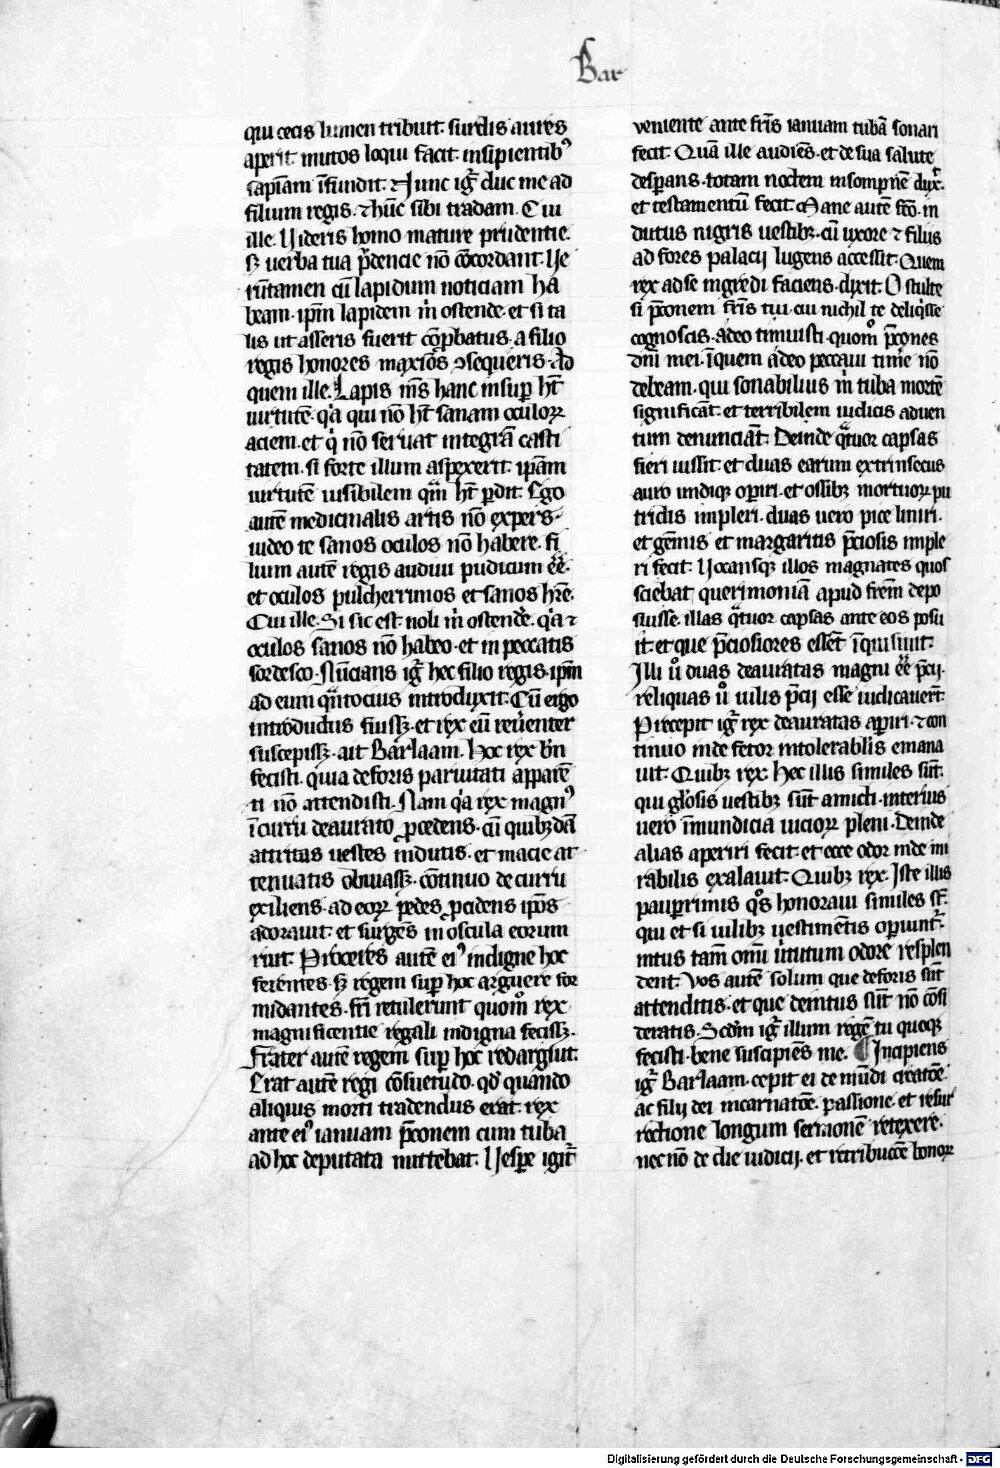 Bar
qui cecis lumen tribuit. surdis aures
aperit. mutos loqui facit. insipientibꝰ
sapiam̄ īfundit. Nunc igr̄ duc me ad
filium regis. ⁊ hūc sibi tradam. Cui
ille. Uideris homo mature prudentie.
sꝫ uerba tua p̄dencie nō cōcordant. Ue
rūtamen cū lapidum noticiam ha
beam. ipm̄ lapidem m̄ ostende. et si ta
lis ut asseris fuerit cōprobatus. a filio
regis honores maxīos ↄsequeris. Ad
quem ille. Lapis m̄s hanc insuꝑ ht̄
uirtutē. qͥa qui nō ht̄ sanam oculoꝝ
aciem. et qͥ nō seruat integrā casti
tatem. si forte illum aspexerit. ipam̄
uirtutē uisibilem qm̄ ht̄ ꝑdit. Ego
autē medicinalis artis nō expers.
uideo te sanos oculos nō habere. fi
lium autē regis audiui pudicum ee̅.
et oculos pulcherrimos et sanos hr̄e.
Cui ille. Si sic est. noli m̄ ostendē. qͥa ⁊
oculos sanos nō habeo. et in peccatis
sordesco. Nūcians igr̄ hec filio regis. ipm̄
ad eum qͣntocius introduxit. Cū ergo
introductus fuissꝫ. et rex eū reuēenter
suscepissꝫ. ait Barlaam. Hoc rex bn̄
fecisti. quia deforis paruitati apparē
ti nō attendisti. Nam qͥa rex magnꝰ
ī curru deaurato ꝓcedens. cū quibꝫdā
attritas uestes indutis. et macie at
tenuatis obuiassꝫ. cōtinuo de curru
exiliens. ad eoꝝ pedes ꝓcidens ip̄os
adorauit. et surgēs in oscula eorum
ruit. Proceres autē eiꝰ indigne hoc
ferentes. sꝫ regem suꝑ hoc arguere for
midantes. fr̄i retulerunt quom̊ rex
magnificentie regali indigna fecissꝫ.
Frater autē regem suꝑ hoc redarguit.
Erat autē regi cōsuetudo. qd̄ quando
aliquis morti tradendus erat. rex
ante eiꝰ ianuam p̄conem cum tuba
ad hoc deputata mittebat. Uesꝑe igit̄
veniente ante fr̄is ianuam tubā sonari
fecit. Quā ille audiēs. et de sua salute
desꝑans. totam noctem insompnē dux̄.
et testamentū fecit. Mane autē fc̄o. in
dutus nigris uestibꝫ. cū uxore ⁊ filiis
ad fores palacij lugens accessit. Quem
rex ad se ingredi faciens. dixit. O stulte
si p̄conem fr̄is tui. cui nichil te deliq̄sse
cognoscis. adeo timuisti. quom̊ p̄cones
dn̄i mei. ī quem adeo peccaui timē nō
debeam. qui sonabilius m̄ tuba mortē
significāt. et terribilem iudicis aduen
tum denunciāt. Deinde qͣtuor capsas
fieri iussit. et duas earum extrinsecus
auro undiqꝫ oꝑiri. et ossibꝫ mortuoꝝ pu
tridis impleri. duas uero pice liniri.
et gēmis et margaritis p̄ciosis imple
ri fecit. Uocansqꝫ illos magnates quos
sciebat querimoniā apud frēm depo
suisse. illas qͣtuor capsas ante eos posu
it. et que p̄ciosiores essēt īquisiuit.
Illi u̇ duas deauratas magni ee̅ p̄cij.
reliquas u̇ uilis p̄cij esse iudicauer̄t.
Precepit igr̄ rex deauratas aꝑiri. ⁊ con
tinuo inde fetor intolerabl̓is emana
uit. Quibꝫ rex. Hec illis similes sūt.
qui gl̓osis uestibꝫ sūt amicti. interius
uero īmundicia uicioꝝ pleni. Deinde
alias aperiri fecit. et ecce odor inde mi
rabilis exalauit. Quibꝫ rex. Iste illis
pauꝑrimis qͦs honoraui similes sf̄.
qui et si uilibꝫ uestimētis oꝑiunt̄.
intus tam̄ omi u̓tutum odore resplen
dent. Vos autē solum que deforis sūt
attenditis. et que deintus sūt nō cōsi
deratis. Scdm̄ igr̄ illum regē tu quoqꝫ
fecisti. bene suscipiēs me. ¶ Incipiens
igr̄ Barlaam. cepit ei de mūdi creatōe.
ac filij dei incarnatōe. passione et resur
rectione longum sermonē retexere.
nec nō de die iudicij. et retribucōe bonoꝝ
Digitalisierung gefördert durch die Deutsche Forschungsgemeinschaft - DFG